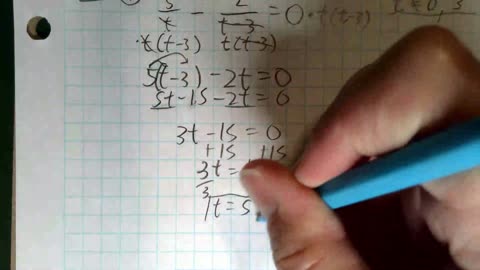 5/t - 2/(t-3) = 0 · t(t-3) t ≠ 0, 3
· t(t-3) t(t-3)
5(t-3) - 2t = 0
5t - 15 - 2t = 0
3t - 15 = 0
+15 +15
3t =
3
t = 5